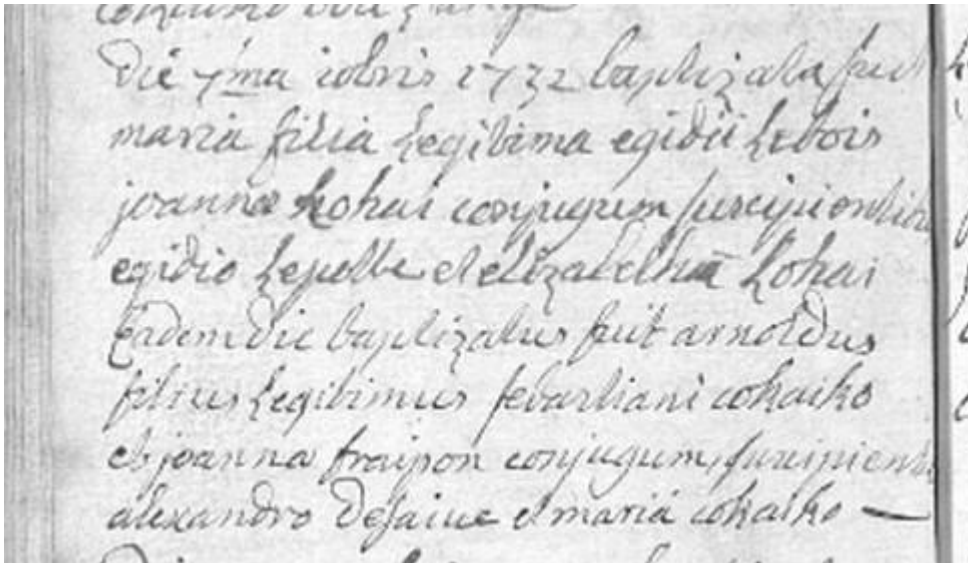 die 7ma 10bris 1732 baptizata fuit
maria filia Legitima egidii Lebois
joanna Lohai conjugum suscipientibus
egidio et elizabetha Lohai
Eadem die baptizatus fuit arnoldus
filius Legitimus sebastiani cokaiko
et joanna fraipon conjugum, suscipientibus
alexandro Desaive et maria cokaiko —